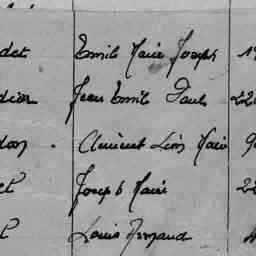 det Emile Marie Joseph 1
dier Jean Emile Paul 22
don . Clément Léon Marie 9
et Joseph Marie 22
t Louis Armand